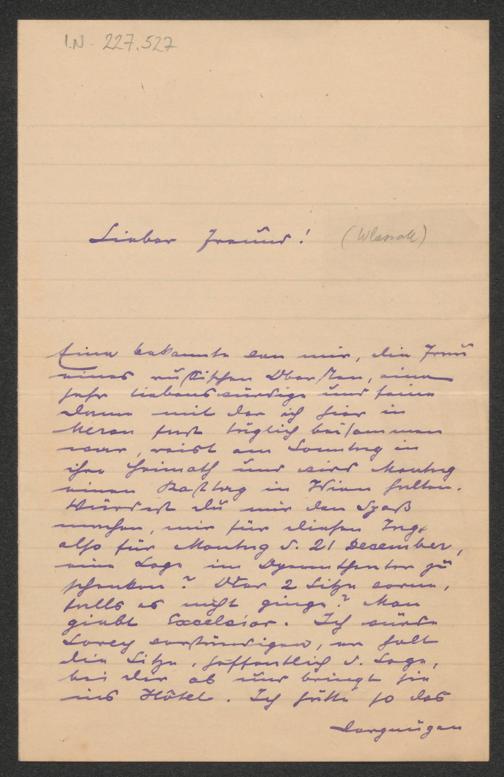 I.N. 227.527
Lieber Freund! (Wlassak)
Eine bekannte von mir, die Frau
eines russischen Obersten, eine
sehr liebenswürdige und feine
Dame mit der ich hier in
Meran fast täglich beisammen
war, reist am Sonntag in
ihre Heimath und wird Montag
einen Rasttag in Wien halten.
Würdest du mir den Spaß
machen, mir für diesen Tag,
also für Montag d. 21 December,
eine Loge im Operntheater zu
schenken? Oder 2 Sitze vorne,
falls es nicht ginge? Man
giebt Excelsior. Ich würde
verständigen, er holt
die Sitze, hoffentlich d. Loge,
bei dir ab und bringt sie
ins Hôtel. Ich hätte so das
Vergnügen